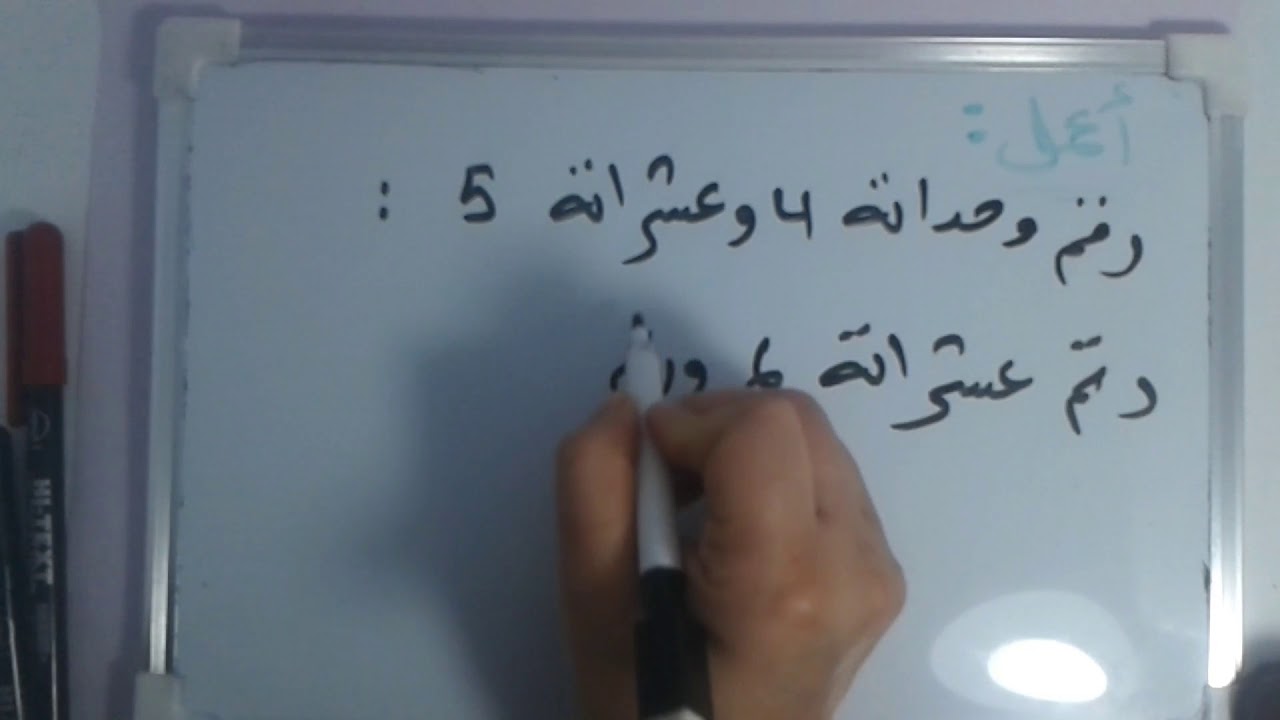 أكمل:
رقم وحداته 4 وعشراته 5 :
رقم عشراته 6
HI-TEXT